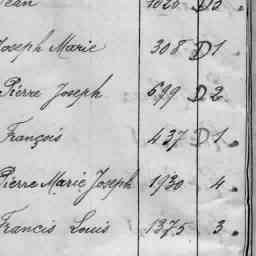 Jean 1020 D3
Joseph Marie 308 D1
Pierre Joseph 699 D2
François 437 D1
Pierre Marie Joseph 1930 4
Francis Louis 1375 3